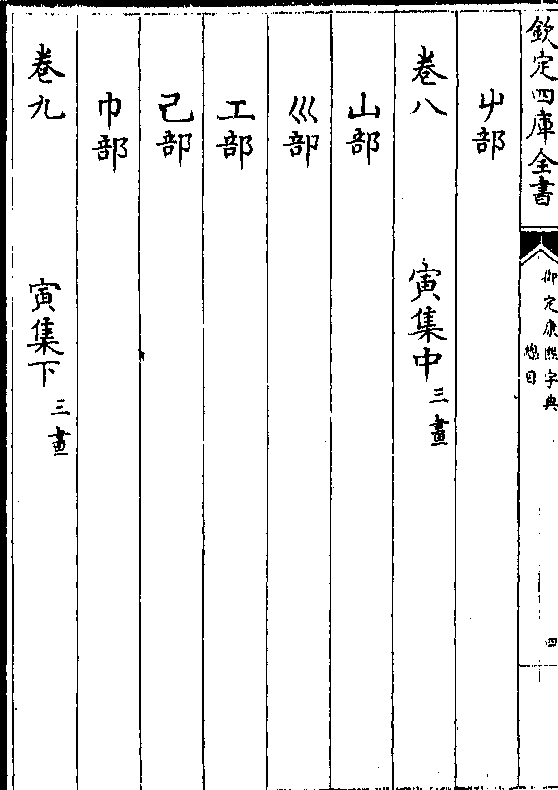 欽定四庫全書
御定康熙字典
總目
四
屮部
卷八 寅集中 三畫
山部
巛部
工部
己部
巾部
卷九 寅集下 三畫